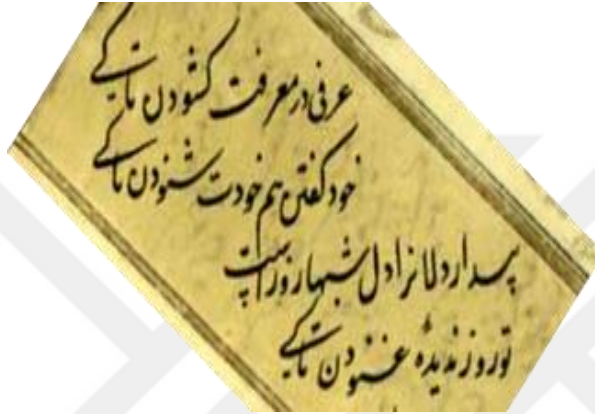 عرفی در معرفت کشودن تا کے
خود کفتن هم خودت شنودن تا کے
بیدار دلانرا دل شبها روز است
تو روز ندیدهٔ غنودن تا کے